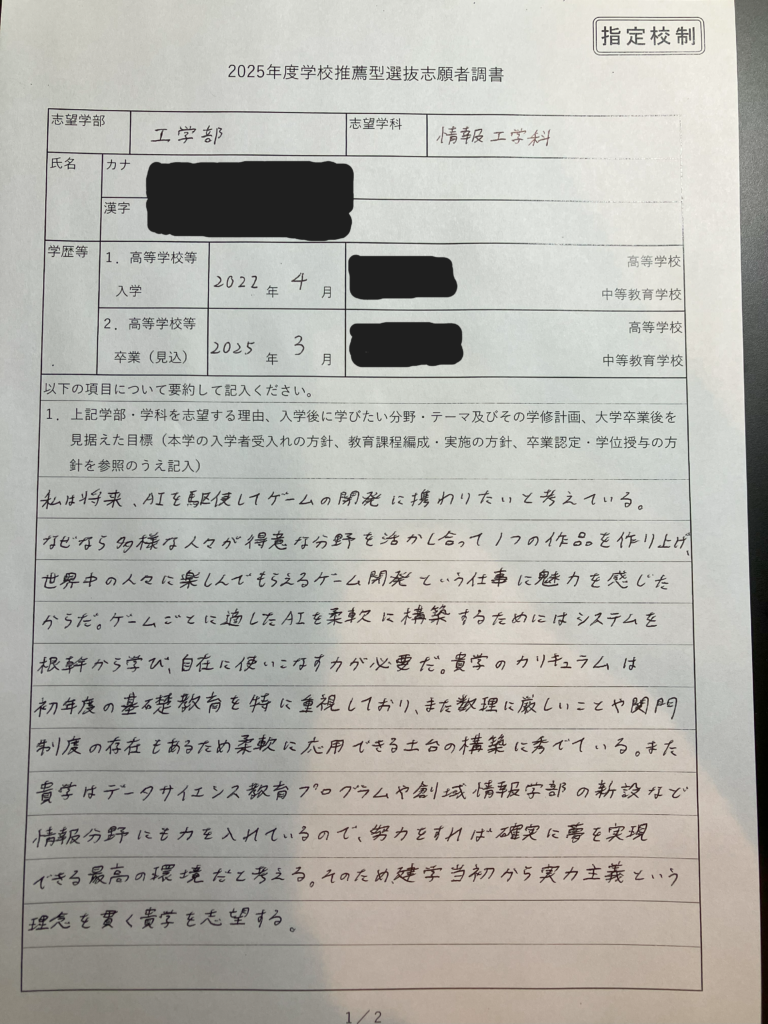 指定校制
2025年度学校推薦型選抜志願者調書
志望学部 工学部 志望学科 情報工学科
氏名 カナ
漢字
学歴等 1．高等学校等 入学 2022年 4月 高等学校 中等教育学校
2．高等学校等 卒業（見込） 2025年 3月 高等学校 中等教育学校
以下の項目について要約して記入ください。
1．上記学部・学科を志望する理由、入学後に学びたい分野・テーマ及びその学修計画、大学卒業後を
見据えた目標（本学の入学者受入れの方針、教育課程編成・実施の方針、卒業認定・学位授与の方
針を参照のうえ記入）
私は将来、AIを駆使してゲームの開発に携わりたいと考えている。
なぜなら多様な人々が得意な分野を活かし合って1つの作品を作り上げ、
世界中の人々に楽しんでもらえるゲーム開発という仕事に魅力を感じた
からだ。ゲームごとに適したAIを柔軟に構築するためにはシステムを
根幹から学び、自在に使いこなす力が必要だ。貴学のカリキュラムは
初年度の基礎教育を特に重視しており、また数理に厳しいことや関門
制度の存在もあるため柔軟に応用できる土台の構築に秀でている。また
貴学はデータサイエンス教育プログラムや創域情報学部の新設など
情報分野にも力を入れているので、努力をすれば確実に夢を実現
できる最高の環境だと考える。そのため建学当初から実力主義という
理念を貫く貴学を志望する。
1／2